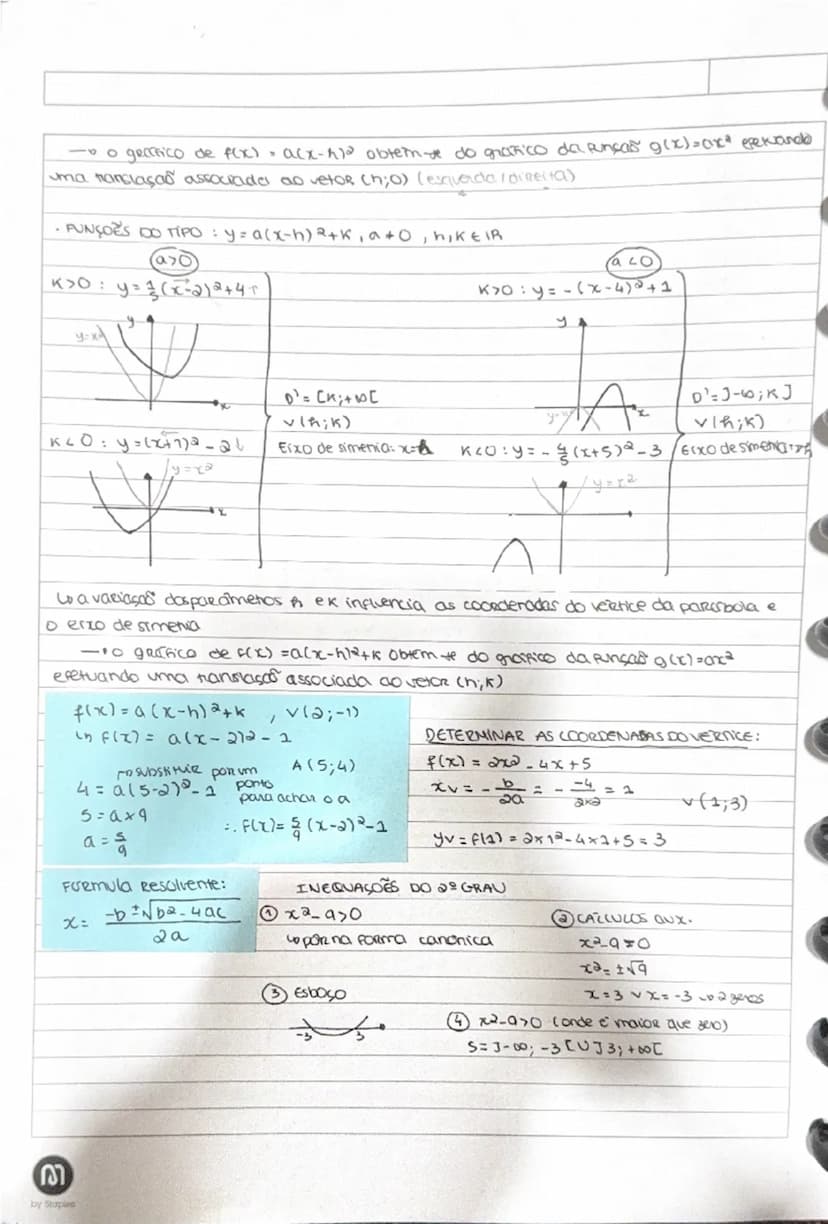 → o gráfico de f(x) = a(x-h)² obtem-se do gráfico da função g(x)=ax² efetuando
uma translação associada ao vetor (h;0) (esquerda/direita)
• FUNÇÕES DO TIPO: y=a(x-h)²+k, a≠0, h,k∈IR
a>0
K>0: y=1/5(x-2)²+4↑
y
y=x²
x
K<0: y=(x+1)²-2↓
y=x²
x
D'=[k;+∞[
V(h;k)
Eixo de simetria: x=h
a<0
K>0: y=-(x-4)²+1
y
x
K<0: y=-4/5(x+5)²-3
y=x²
D'=]-∞;k]
V(h;k)
Eixo de simetria:
↳ a variação dos parâmetros h e k influencia as coordenadas do vértice da parábola e
o eixo de simetria
→ o gráfico de f(x)=a(x-h)²+k obtem-se do gráfico da função g(x)=ax²
efetuando uma translação associada ao vetor (h;k)
f(x)=a(x-h)²+k , V(2;-1)
↳ f(x)=a(x-2)²-1
→ substituir por um ponto para achar o a
A(5;4)
4=a(5-2)²-1
5=a×9
a=5/9
∴ f(x)=5/9(x-2)²-1
DETERMINAR AS COORDENADAS DO VÉRTICE:
f(x)=2x²-4x+5
xv=-b/2a=-(-4)/(2×2)=1
V(1;3)
yv=f(1)=2×1²-4×1+5=3
Formula Resolvente:
x=(-b±√(b²-4ac))/2a
INEQUAÇÕES DO 2º GRAU
① x²-9>0
↳ pôr na forma canónica
② CÁLCULOS AUX.
x²-9=0
x²=±√9
x=3 ∨ x=-3 ↳ 2 zeros
③ ESBOÇO
-3 3
④ x²-9>0 (onde é maior que zero)
S=]-∞;-3[U]3;+∞[
by Staples